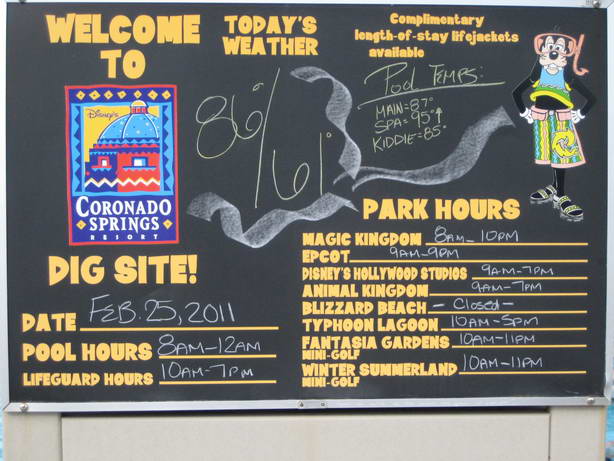 WELCOME
TO
Disney's
CORONADO
SPRINGS
RESORT
DIG SITE!
DATE FEB. 25, 2011
POOL HOURS 8AM-12AM
LIFEGUARD HOURS 10AM-7PM
TODAY'S
WEATHER
86°/61°
Complimentary
length-of-stay lifejackets
available
Pool TEMPS:
MAIN=87°
SPA=95°↑
KIDDIE=85°
PARK HOURS
MAGIC KINGDOM 8AM-10PM
EPCOT 9AM-9PM
DISNEY'S HOLLYWOOD STUDIOS 9AM-7PM
ANIMAL KINGDOM 9AM-7PM
BLIZZARD BEACH -Closed-
TYPHOON LAGOON 10AM-5PM
FANTASIA GARDENS 10AM-11PM
MINI-GOLF
WINTER SUMMERLAND 10AM-11PM
MINI-GOLF